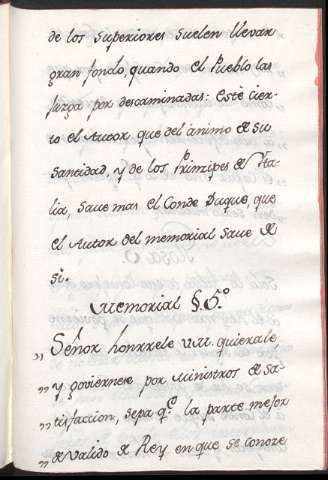 de los superiores suelen llevar
gran fondo, quando el Pueblo las
juzga por descaminadas: Estè cier-
to el Autor que del ánimo de su
santidad, y de los Principes de Yta-
lia, save mas el Conde Duque, que
el Autor del memorial save de
si.
Memorial §. 6.º
„ Señor honrrele VM. quierale,
„ y goviernese por Ministros de sa-
„ tisfaccion, sepa q.e la parte mejor
„ de valido de Rey en que se conoce